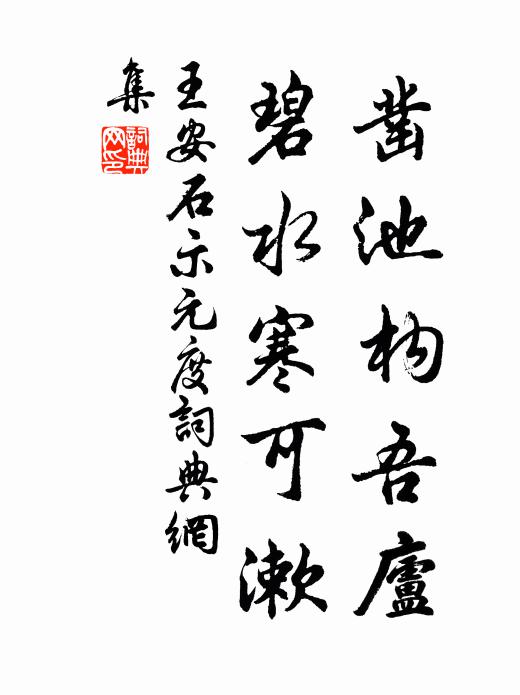 凿池构吾廬
碧水寒可漱
王安石示元度詞典網
集
詞典网印